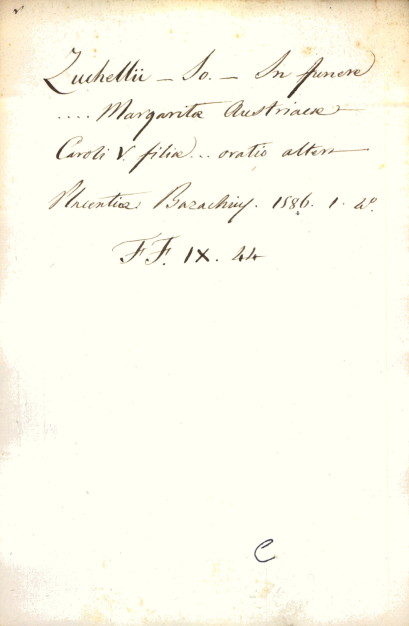 Zuchellii – Io. – In funere
.... Margaritæ Austriacæ
Caroli V. filiæ... oratio altera
Placentiæ. Bazachius. 1586. 1. 4°.
FF. IX. 44
C